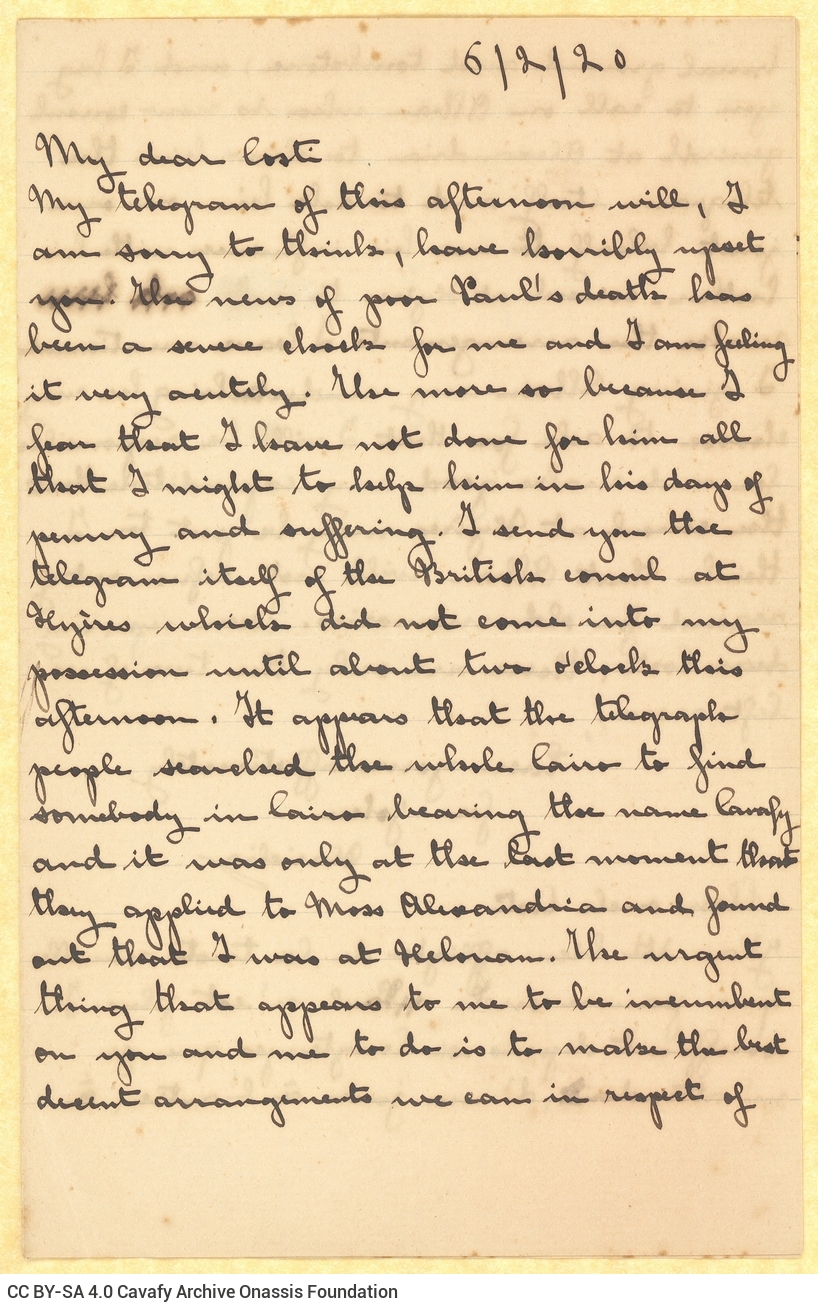 6/2/20
My dear Costi
My telegram of this afternoon will, I
am sorry to think, have horribly upset
you. The news of poor Paul's death has
been a severe shock for me and I am feeling
it very acutely. The more so because I
fear that I have not done for him all
that I might to help him in his days of
penury and suffering. I send you the
telegram itself of the British consul at
Hyères which did not come into my
possession until about two o'clock this
afternoon. It appears that the telegraph
people searched the whole Cairo to find
somebody in Cairo bearing the name Cavafy
and it was only at the last moment that
they applied to Moss Alexandria and found
out that I was at Helouan. The urgent
thing that appears to me to be incumbent
on you and me to do is to make the best
decent arrangements we can in respect of
CC BY-SA 4.0 Cavafy Archive Onassis Foundation